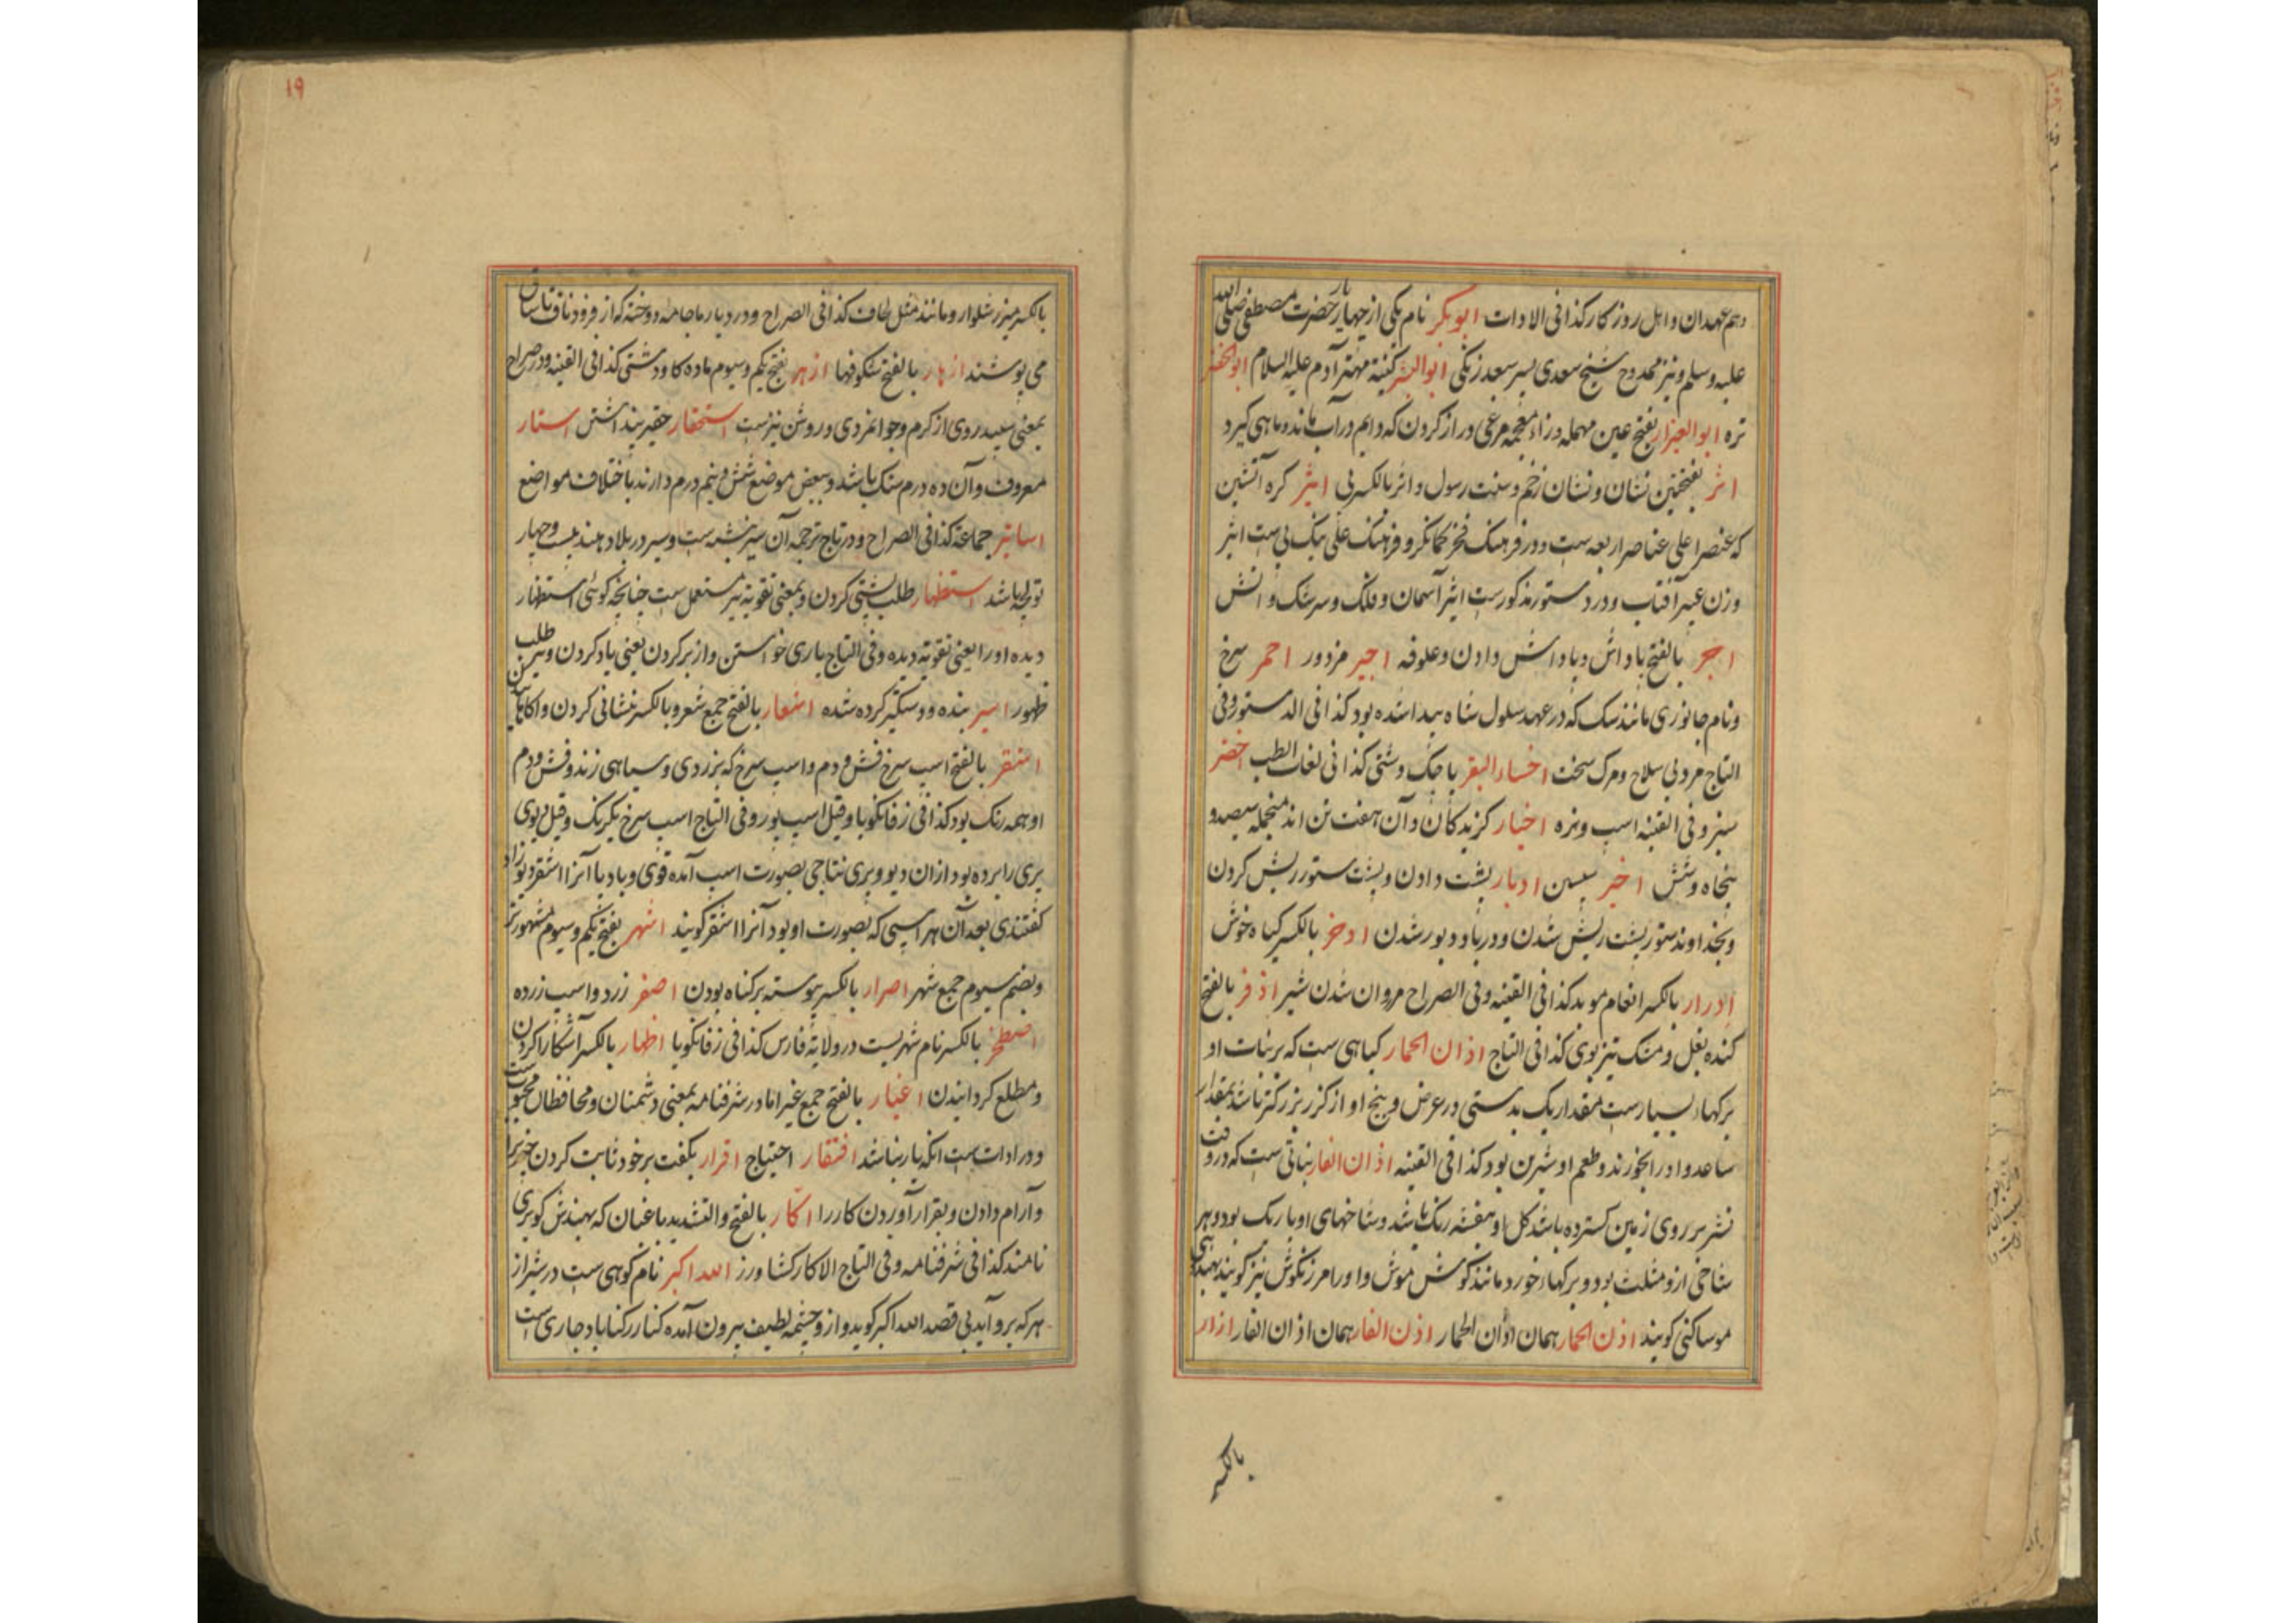 هم عهدان و اهل روزکار کذا فی الادات ابوبکر نام یکی از چهار یار حضرت مصطفی صلی الله
علیه وسلم و نیز ممدوح شیخ سعدی پسر سعد زنکی ابوالبشر کنیة مهتر آدم علیه السلام ابوالخضر
تره ابوالعیزار بفتح عین مهمله و زاء معجمه مرغی دراز کردن که دایم در آب ماند و ماهی کیرد
اثر بفتحتین نشان و نشان زخم و سنت رسول و اثر بالکسر پی اثیر کره آتشین
که عنصر اعلی عناصر اربعه ست و در فرهنک فخر کمانکر و فرهنک علی بیک پی ست اثیر
وزن عبیر آفتاب و در دستور مذکورست اثیر آسمان و فلک و سرشک و آتش
اجر بالفتح پاداش و پاداش دادن و علوفه اجیر مزدور احمر سرخ
و نام جانوری مانند سک که در عهد سلول شاه پیدا شده بود کذا فی الدستور و فی
التاج مرد بی سلاح و مرک سخت اخساء البقر باچک دشتی کذا فی لغات الطب اخضر
سبز و فی القنیه اسب و نره اخیار کزیدکان و آن هفت تن اند منجمله سیصد و
پنجاه و شش اخیر پسین ادبار پشت دادن و پشت ستور ریش کردن
و بخداوند ستور پشت ریش شدن و در باد دبور شدن ادخر بالکسر کیاه خوش
ادرار بالکسر انعام موبد کذا فی القنیه و فی الصراح روان شدن شیر اذفر بالفتح
کنده بغل و مشک تیز بوی کذا فی التاج اذان الحمار کیاهی ست که بر نبات او
برکهاء بسیارست بمقدار یک بدستی در عرض و بیخ او از کزر بزرکتر باشد بمقدار
ساعد و او را بخورند و طعم او شیرین بود کذا فی القنیه اذان الفار نباتی ست که در وقت
نشر بر روی زمین کسترده باشد کل او بنفشه رنک باشد و شاخهای او باریک بود و هر
شاخی ازو مثلث بود و برکهاء خورد مانند کوش موش و او را مرزنکوش نیز کویند بهندی
موساکنی کویند اذن الحمار همان اذان الحمار اذن الفار همان اذان الفار ازار
بالکسر
۱۹
بالکسر میزر شلوار و مانند مثل لحاف کذا فی الصراح و در دیار ما جامه دوخته که از فرود ناف تا ساق
می پوشند ازهار بالفتح شکوفها ازهر بفتح یکم و سیوم ماده کاو دشتی کذا فی القنیه و در صراح
بمعنی سپید روی از کرم و جوانمردی و روشن نیزست استحقار حقیر پنداشتن استار
معروف و آن ده درم سنک باشد و ببعض موضع شش و نیم درم دارند باختلاف مواضع
اساتیر جماعة کذا فی الصراح و در تاج ترجمه آن سیر نبشته ست و سیر در بلاد هند بیست و چهار
تولچه باشد استظهار طلب پشتی کردن و بمعنی تقویة نیز مستعمل ست چنانچه کوئی استظهار
دیده او را یعنی تقویة دیده و فی التاج یاری خواستن و از بر کردن یعنی یاد کردن و نیز طلب
ظهور اسیر بنده و دستکیر کرده شده اشعار بالفتح جمع شعر و بالکسر نشانی کردن و آکاهانیدن
اشقر بالفتح اسب سرخ فش و دم و اسب سرخ که بزردی و سیاهی زند و فش و دم
او همه رنک بود کذا فی زفانکویا و قیل اسپ بور و فی التاج اسب سرخ یکرنک و قیل دیوی
پری را برده بود ازان دیو و پری نتاجی بصورت اسب آمده قوی و باد پا آنرا اشقر دیوزاد
کفتندی بعد آن هر اسپی که بصورت او بود آنرا اشقر کویند اشهر بفتح یکم و سیوم مشهورتر
و بضم سیوم جمع شهر اصرار بالکسر پیوسته بر کناه بودن اصفر زرد و اسب زرده
اصطخر بالکسر نام شهریست در ولایة فارس کذا فی زفانکویا اظهار بالکسر آشکارا کردن
و مطلع کردانیدن اغیار بالفتح جمع غیر اما در شرفنامه بمعنی دشمنان و محافظان محبوبست
و در ادات ست انکه یار نباشد افتقار احتیاج اقرار بکفت بر خود ثابت کردن چیزیرا
و آرام دادن و بقرار آوردن کار را اکار بالفتح والتشدید باغبان که بهندش کویری
نامند کذا فی شرفنامه و فی التاج الاکار کشاورز الله اکبر نام کوهی ست در شیراز
هر که برو آید بی قصد الله اکبر کوید و ازو چشمه لطیف بیرون آمده کنار رکناباد جاری ست